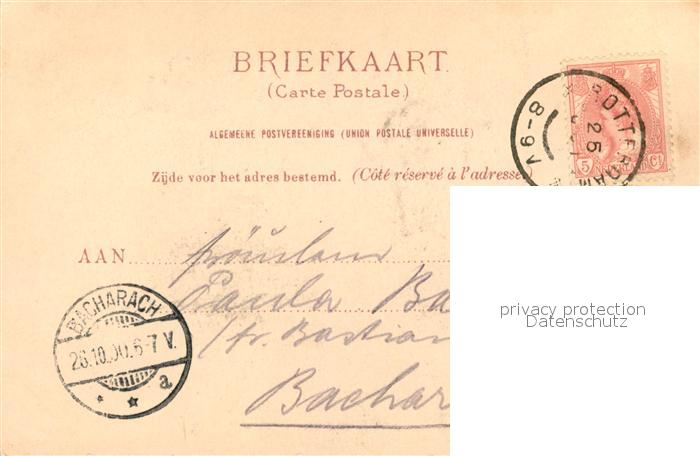 BRIEFKAART.
(Carte Postale.)
ALGEMEENE POSTVEREENIGING (UNION POSTALE UNIVERSELLE)
Zijde voor het adres bestemd. (Côté réservé à l'adresse
5 Ct
ROTTERDAM
25
8-9V
privacy protection
Datenschutz
AAN Fräulein
Paula Ba
Bastian
Bachar
BACHARACH
26.10.00.6-7 V.
a